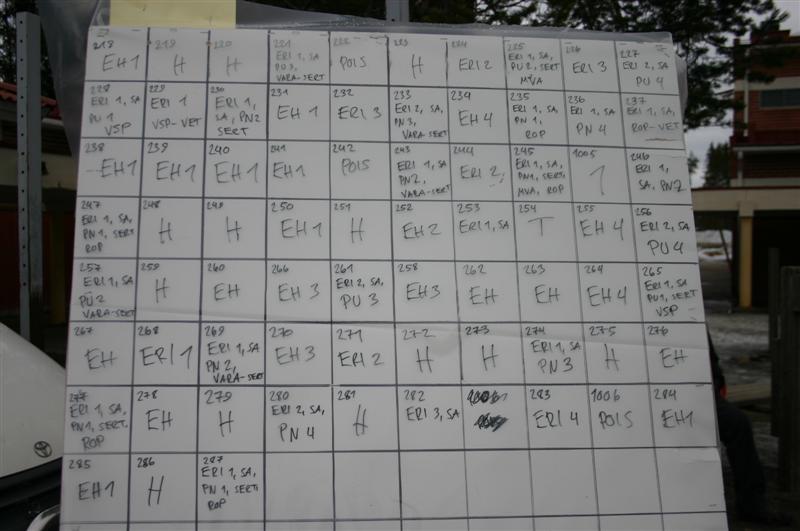 218 EH1
219 H
220 H
221 ERI 1, SA PU 3, VARA-SERT
222 POIS
223 H
224 ERI 2
225 ERI 1, SA, PU 2, SERT MVA
226 ERI 3
227 ERI 2, SA PU 4
228 ERI 1, SA PU 1 VSP
229 ERI 1 VSP-VET
230 ERI 1, SA, PN2 SERT
231 EH 1
232 ERI 3
233 ERI 2, SA, PN 3, VARA-SERT
234 EH 4
235 ERI 1, SA PN 1, ROP
236 ERI 1, SA PN 4
237 ERI 1, SA, ROP-VET
238 EH1
239 EH1
240 EH1
241 EH1
242 POIS
243 ERI 1, SA PN2, VARA-SERT
244 ERI 2
245 ERI 1, SA, PN1, SERT, MVA, ROP
1005 1
246 ERI 1, SA, PN2
247 ERI 1, SA, PN 1, SERT ROP
248 H
249 H
250 EH 1
251 H
252 EH2
253 ERI 1, SA
254 T
255 EH 4
256 ERI 2, SA PU 4
257 ERI 1, SA PU 2 VARA-SERT
259 H
260 EH
266 EH 3
261 ERI 2, SA, PU 3
258 EH3
262 EH
263 EH
264 EH 4
265 ERI 1, SA, PU1, SERT VSP
267 EH
268 ERI 1
269 ERI 1, SA PN 2, VARA-SERT
270 EH 3
271 ERI 2
272 H
273 H
274 ERI 1, SA PN 3
275 H
276 EH
277 ERI 1, SA, PN1, SERT, ROP
278 EH
279 H
280 ERI 2, SA, PN 4
281 H
282 ERI 3, SA
283 ERI 4
1006 POIS
284 EH1
285 EH1
286 H
287 ERI 1, SA, PN 1, SERT ROP